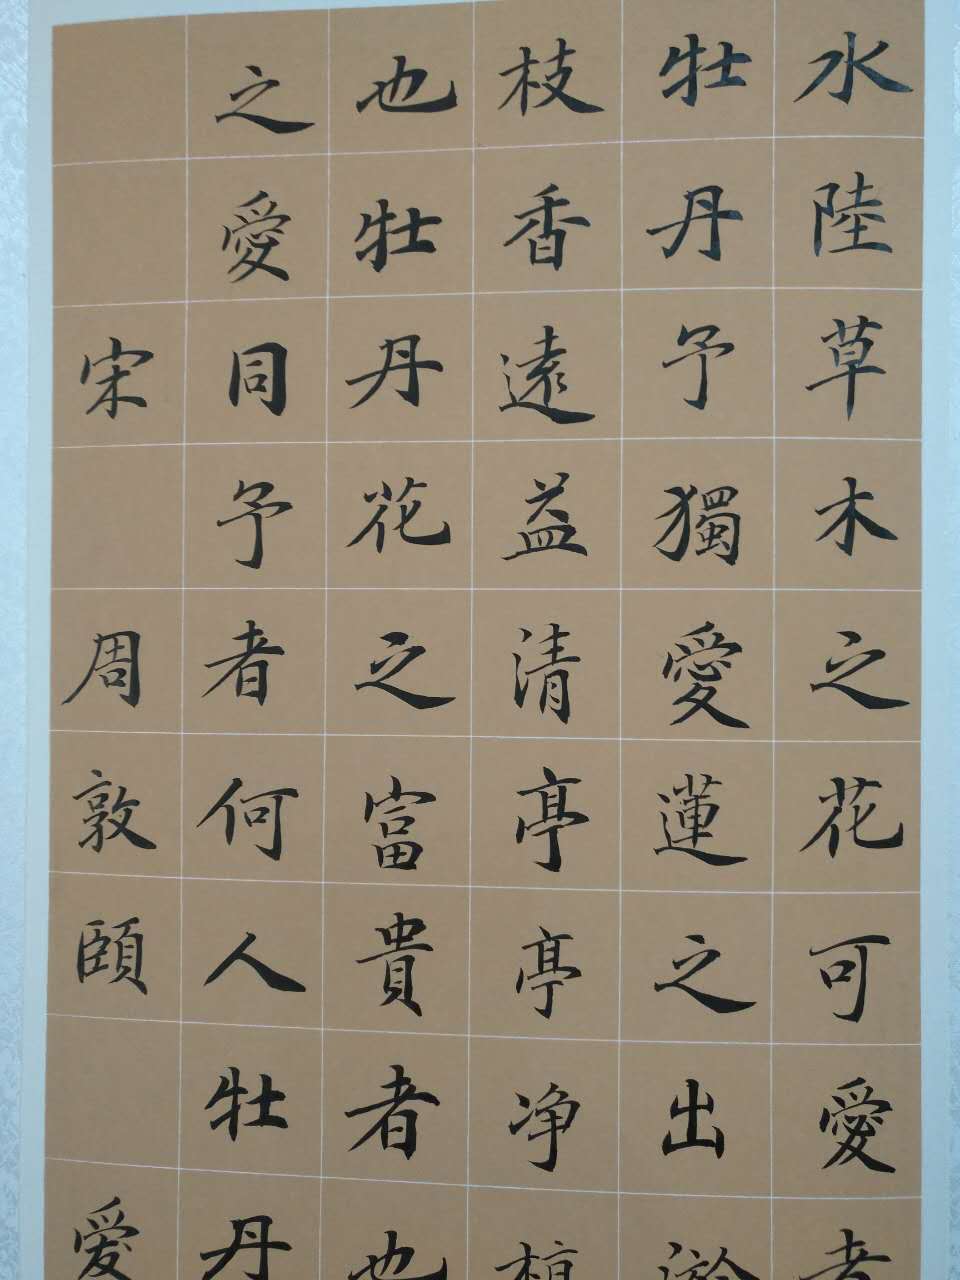 水陸草木之花可愛者
牡丹予獨愛蓮之出淤
枝香遠益清亭亭净植
也牡丹花之富貴者也
之愛同予者何人牡丹
宋 周敦頤 愛